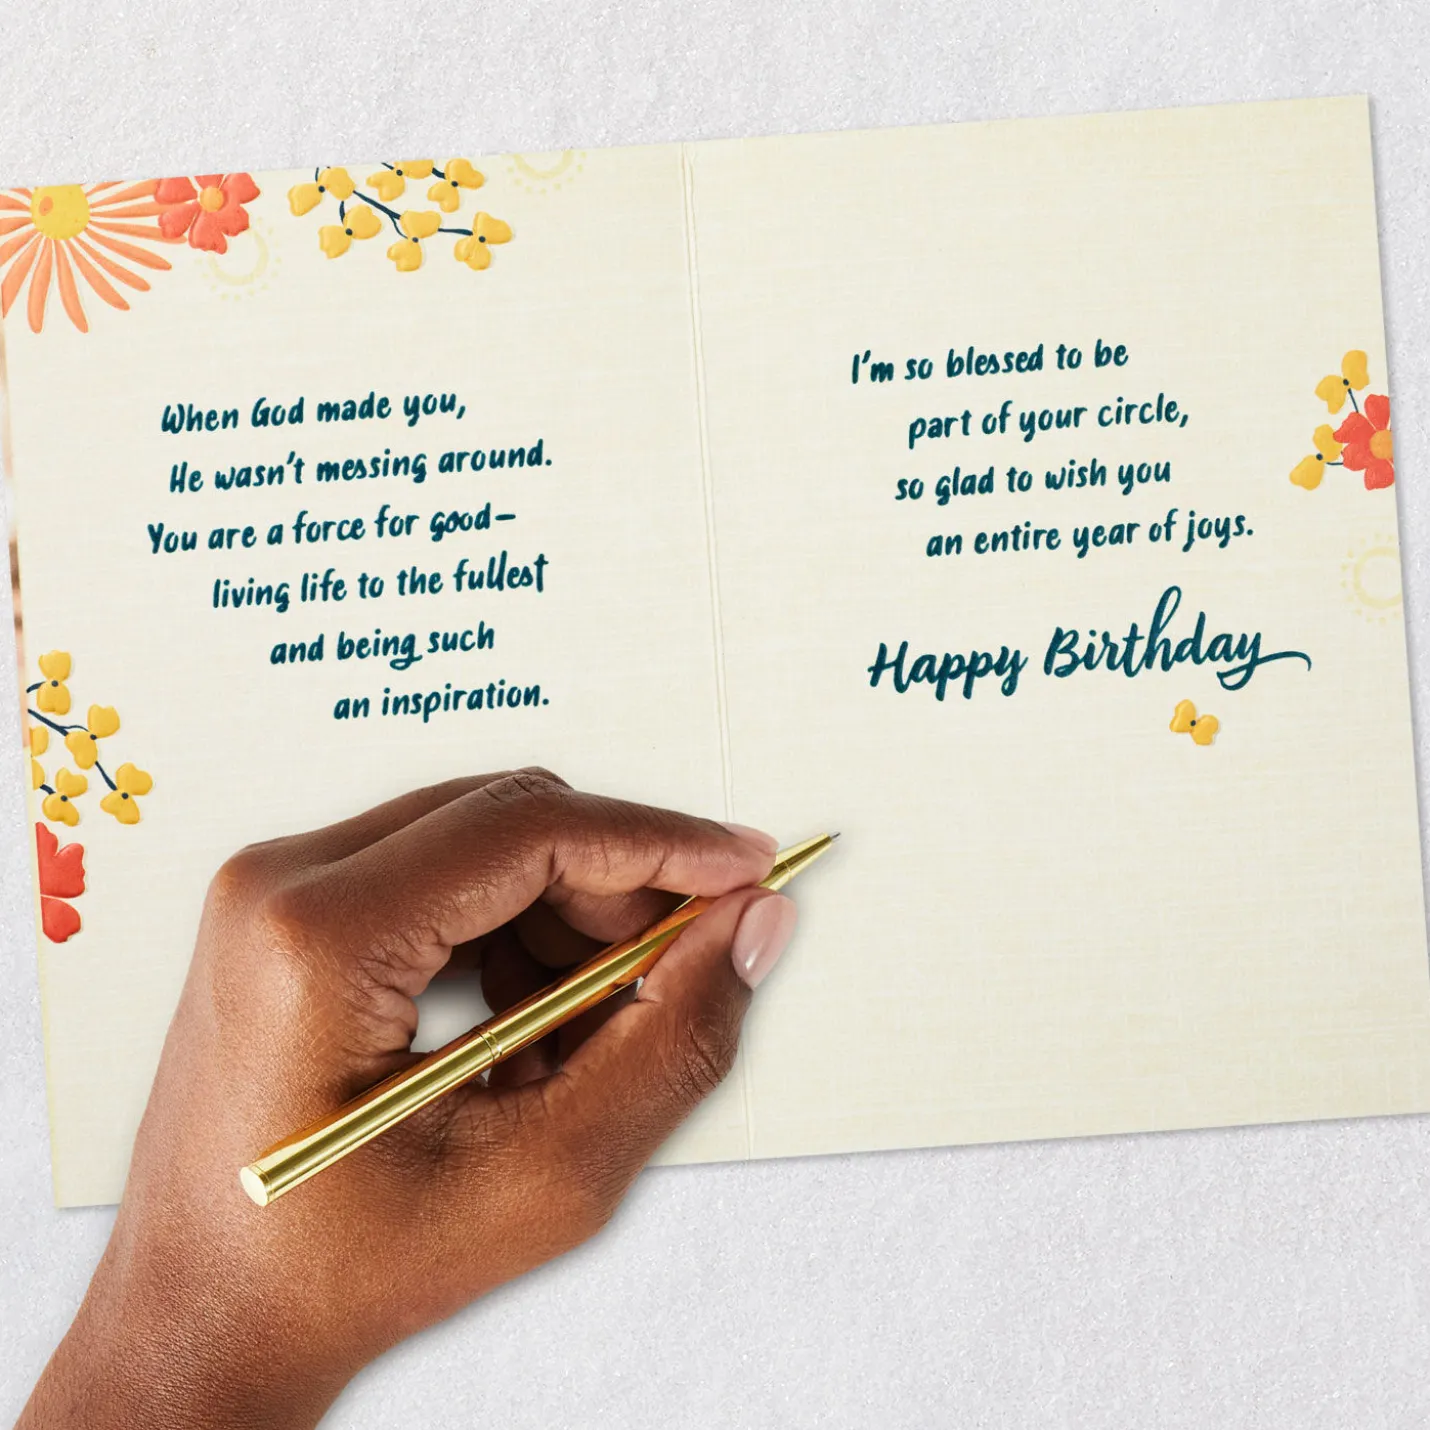 When God made you,
He wasn't messing around.
You are a force for good—
living life to the fullest
and being such
an inspiration.
I'm so blessed to be
part of your circle,
so glad to wish you
an entire year of joys.
Happy Birthday